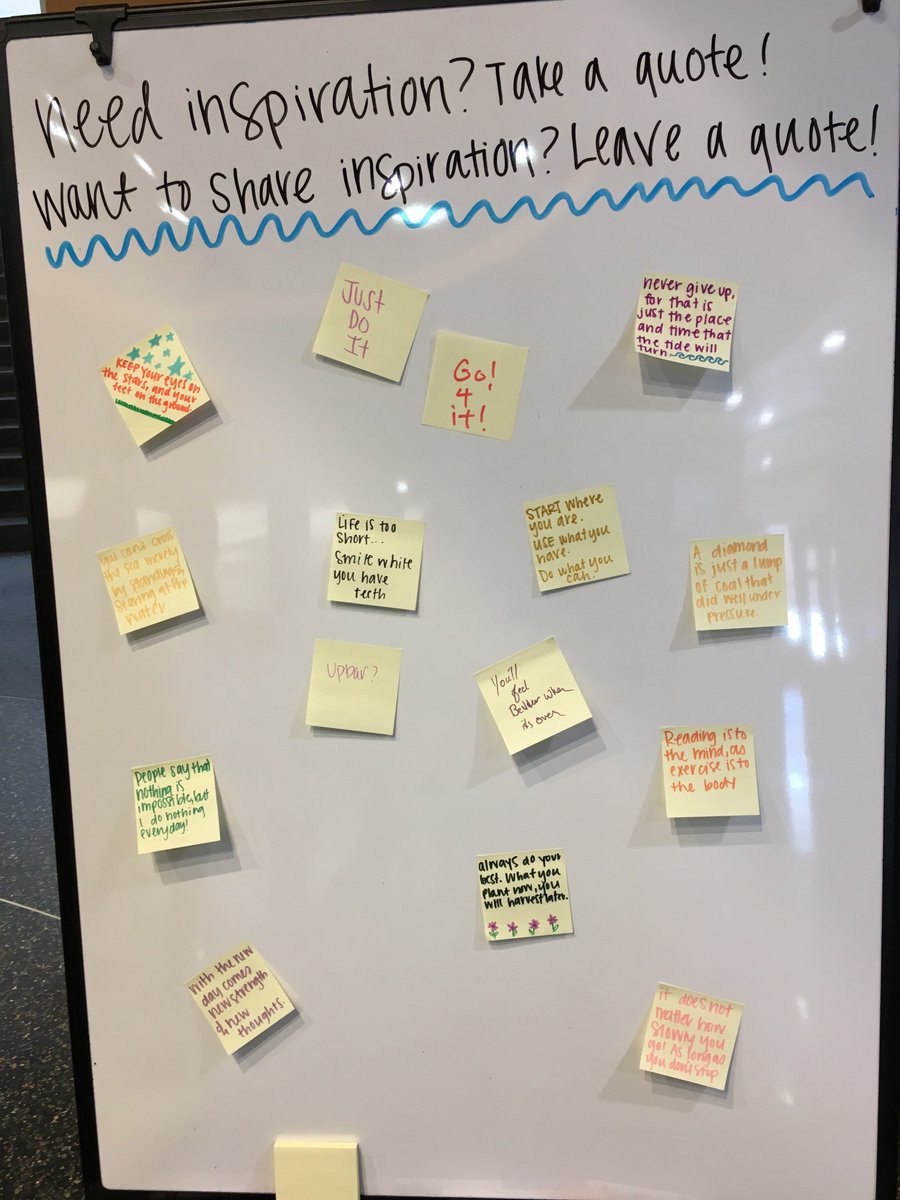 Need inspiration? Take a quote!
Want to share inspiration? Leave a quote!
JUSt
DO
It
Go!
4
it!
never give up,
for that is
just the place
and time that
the tide will
turn.
KEEP YOUR eyes on
the stars, and your
feet on the ground.
START Where
you are.
USE What you
have.
Do what you
can.
Life is too
short...
Smile while
you have
teeth
You can't cross
the sea merely
by standing &
staring at the
water
A diamond
is just a lump
of coal that
did well under
pressure.
Upbar?
You'll
feel
Better when
its over
Reading is to
the mind, as
exercise is to
the body
People say that
nothing is
impossible, but
I do nothing
everyday!
always do your
best. What you
plant now, you
will harvest later.
With the new
day comes
new strength
& new
thoughts.
it does not
matter how
slowly you
go! As long as
you don't stop